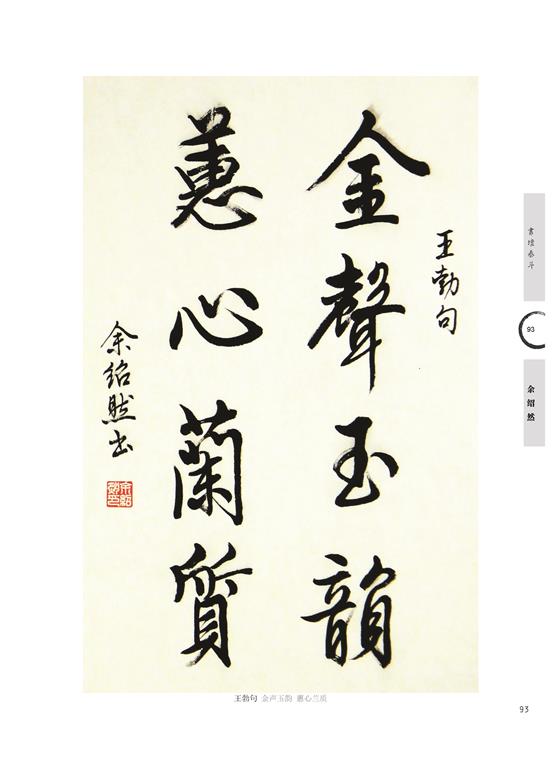 王勃句
金聲玉韻
蕙心蘭質
余紹然书
書壇泰斗
93
余绍然
王勃句 金声玉韵 蕙心兰质
93